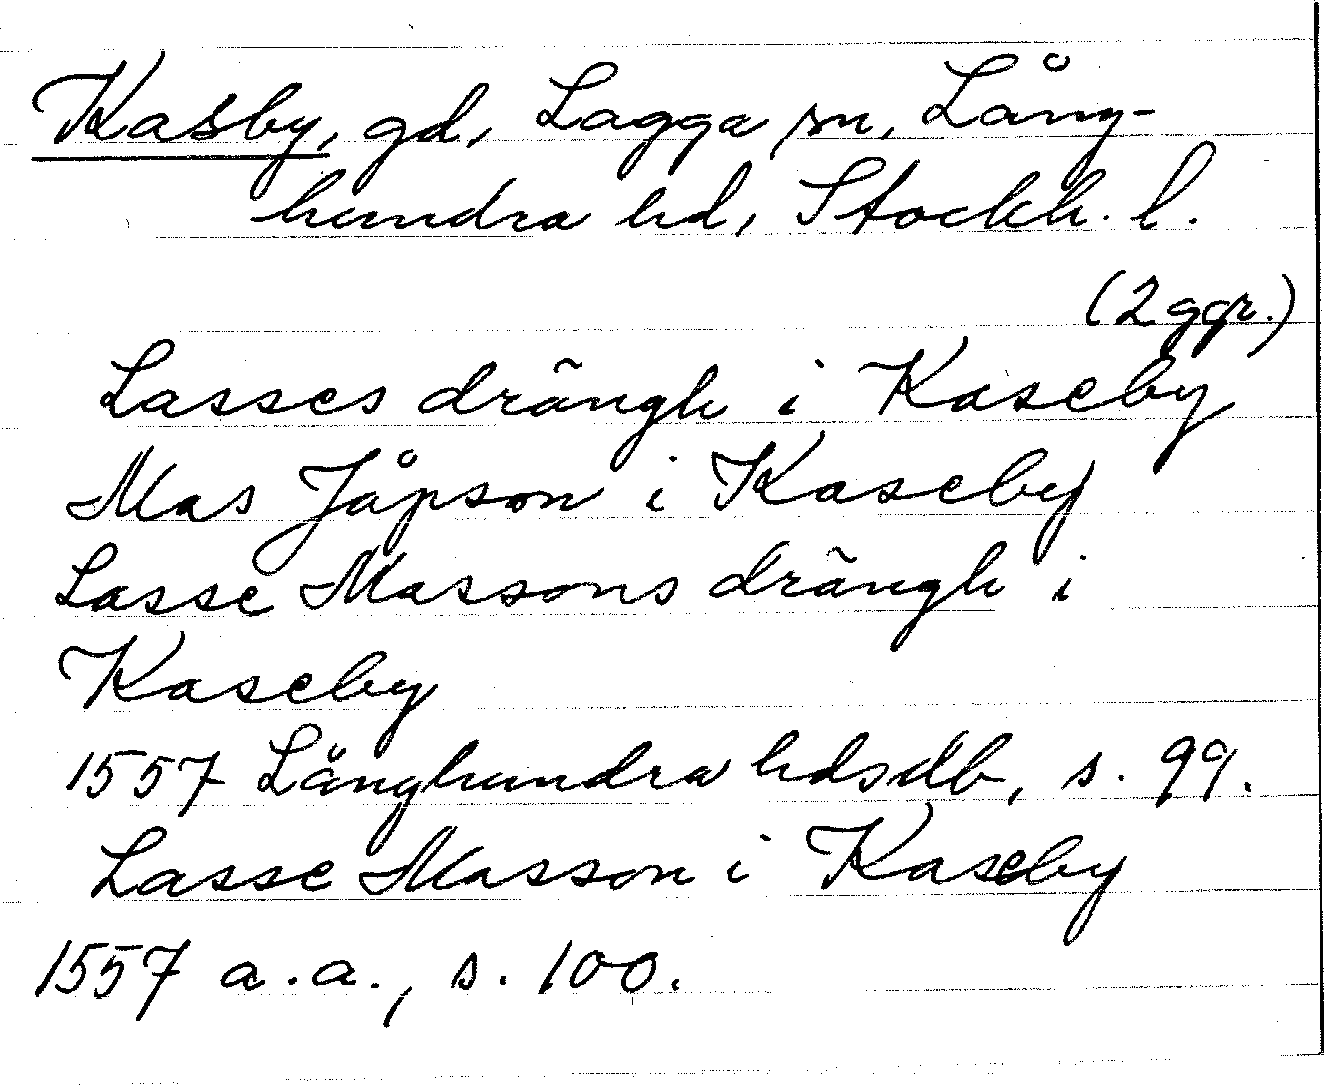 Kasby, gd, Lagga sn, Lång-
hundra hd, Stockh. l.
(2 ggr.)
Lasses drängh i Kaseby
Mas Jåpson i Kaseby
Lasse Massons drängh i
Kaseby
1557 Långhundra hdsdb, s. 99.
Lasse Masson i Kaseby
1557 a.a., s. 100.